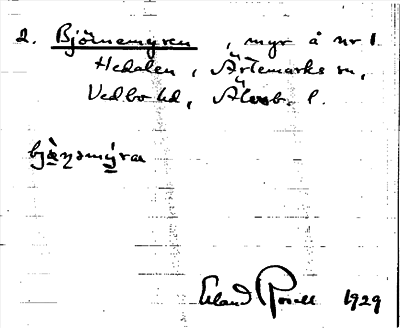 2. Björnemyren, myr å nr 1.
Hedalen, Ärtemarks sn,
Vedbo hd, Älvsb. l.
bjö̀ṇəmýrɑ
Erland Rosell 1929